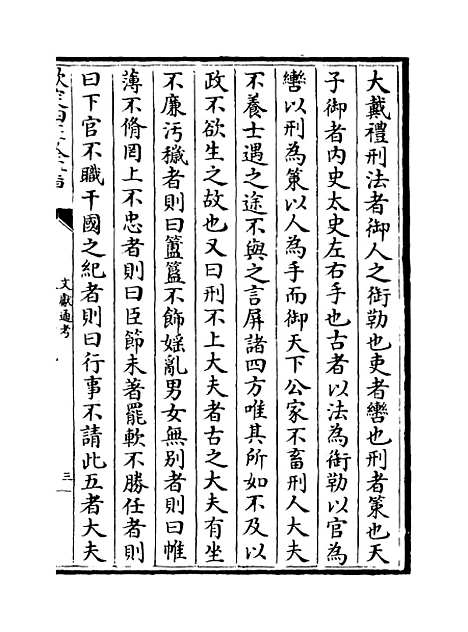 大戴禮刑法者御人之銜勒也吏者轡也刑者策也天
子御者内史太史左右手也古者以法為銜勒以官為
轡以刑為策以人為手而御天下公家不畜刑人大夫
不養士遇之途不與之言屏諸四方唯其所如不及以
政不欲生之故也又曰刑不上大夫者古之大夫有坐
不廉汚穢者則曰簠簋不飾婬亂男女無别者則曰帷
薄不脩罔上不忠者則曰臣節未著罷軟不勝任者則
曰下官不職干國之紀者則曰行事不請此五者大夫
欽定四庫全書
文獻通考
三